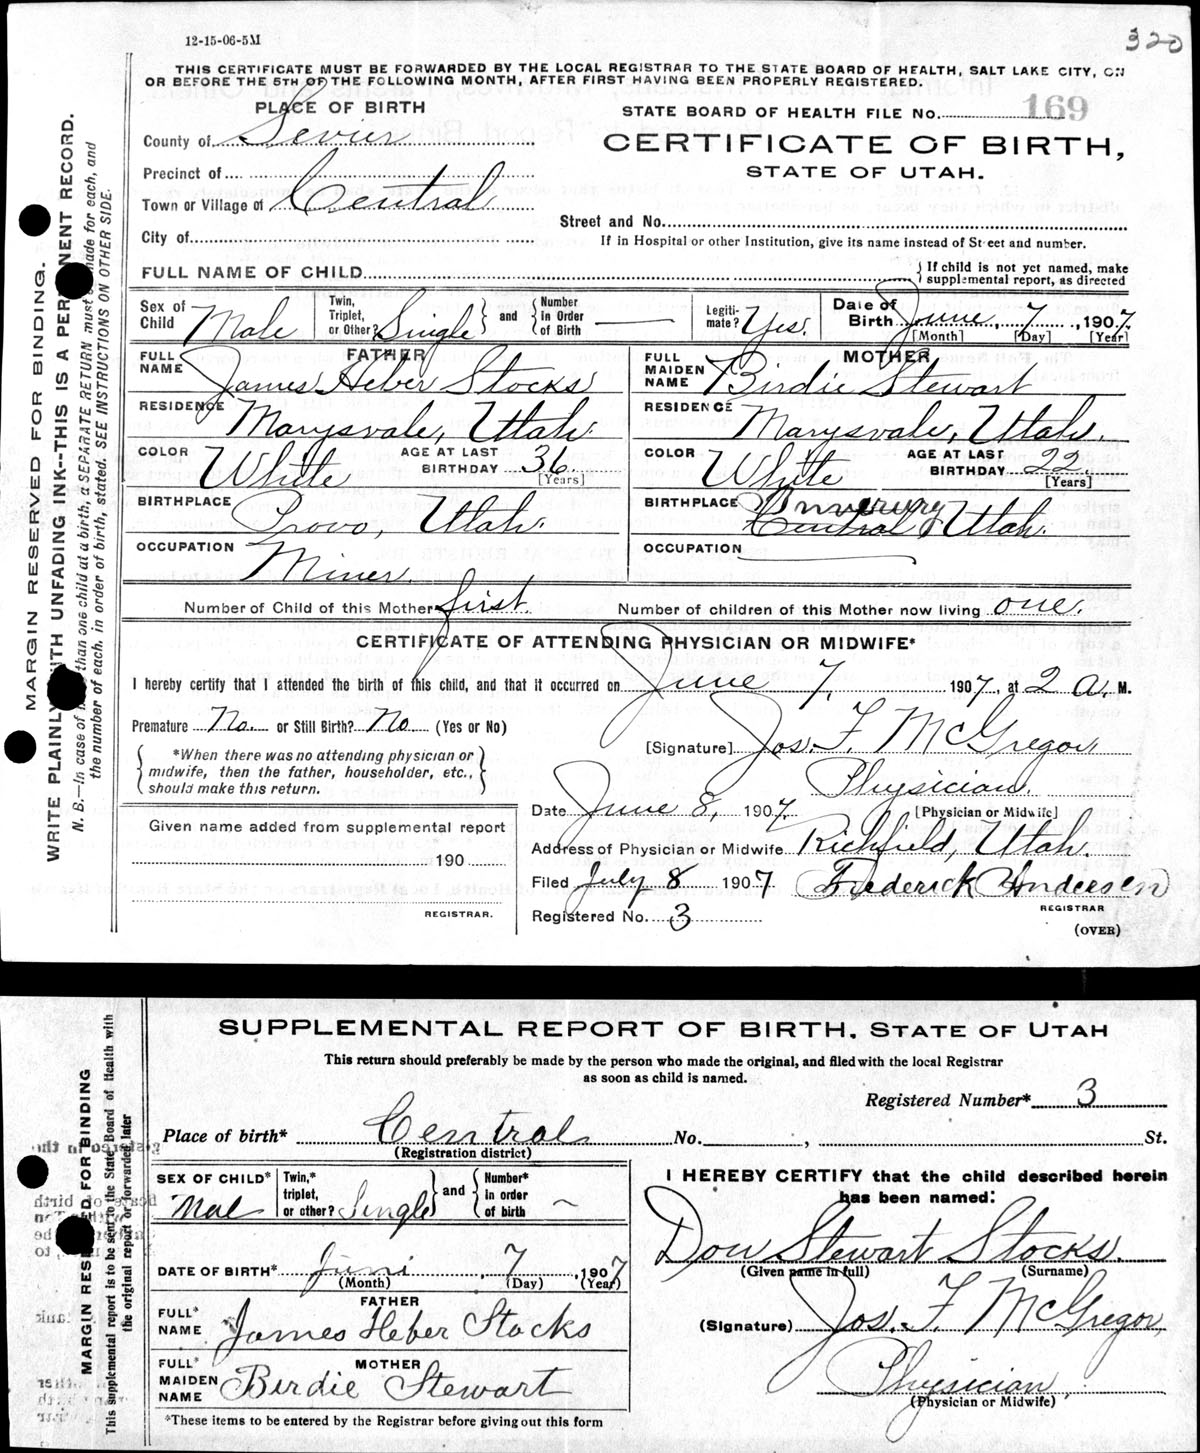 12-15-06-5M
320
THIS CERTIFICATE MUST BE FORWARDED BY THE LOCAL REGISTRAR TO THE STATE BOARD OF HEALTH, SALT LAKE CITY, ON
OR BEFORE THE 5TH OF THE FOLLOWING MONTH, AFTER FIRST HAVING BEEN PROPERLY REGISTERED.
PLACE OF BIRTH
STATE BOARD OF HEALTH FILE No. 169
County of Sevier
CERTIFICATE OF BIRTH,
Precinct of
STATE OF UTAH.
Town or Village of Central
Street and No.
City of
If in Hospital or other Institution, give its name instead of Street and number.
FULL NAME OF CHILD
If child is not yet named, make
supplemental report, as directed
Sex of Child Male
Twin, Triplet, or Other? Single
and
Number in Order of Birth —
Legiti-mate? Yes.
Date of Birth June, 7, 1907.
[Month] [Day] [Year]
FATHER
FULL NAME James Heber Stocks
MOTHER
FULL MAIDEN NAME Birdie Stewart
RESIDENCE Marysvale, Utah.
RESIDENCE Marysvale, Utah.
COLOR White AGE AT LAST BIRTHDAY 36 [Years]
COLOR White AGE AT LAST BIRTHDAY 22 [Years]
BIRTHPLACE Provo, Utah.
BIRTHPLACE Inverury Central, Utah.
OCCUPATION Miner.
OCCUPATION
Number of Child of this Mother first. Number of children of this Mother now living one.
CERTIFICATE OF ATTENDING PHYSICIAN OR MIDWIFE*
I hereby certify that I attended the birth of this child, and that it occurred on June 7, 1907, at 2 a. M.
Premature No. or Still Birth? No. (Yes or No)
[Signature] Jos. F. McGregor,
*When there was no attending physician or
midwife, then the father, householder, etc.,
should make this return.
Physician.
[Physician or Midwife]
Date June 8, 1907.
Given name added from supplemental report
190
REGISTRAR.
Address of Physician or Midwife Richfield, Utah.
Filed July 8 1907 Frederick Andersen
REGISTRAR
Registered No. 3
(OVER)
MARGIN RESERVED FOR BINDING.
WRITE PLAINLY WITH UNFADING INK--THIS IS A PERMANENT RECORD.
N. B.—In case of more than one child at a birth, a SEPARATE RETURN must be made for each, and
the number of each, in order of birth, stated. SEE INSTRUCTIONS ON OTHER SIDE.
SUPPLEMENTAL REPORT OF BIRTH, STATE OF UTAH
This return should preferably be made by the person who made the original, and filed with the local Registrar
as soon as child is named.
Registered Number* 3
Place of birth* Central No. , St.
(Registration district)
SEX OF CHILD* Male
Twin,* triplet, or other? Single
and
Number* in order of birth
I HEREBY CERTIFY that the child described herein
has been named:
Don Stewart Stocks.
(Given name in full) (Surname)
DATE OF BIRTH* Juni, 7, 1907
(Month) (Day) (Year)
FATHER
FULL* NAME James Heber Stocks
(Signature) Jos. F. McGregor,
MOTHER
FULL* MAIDEN NAME Birdie Stewart
Physician,
(Physician or Midwife)
*These items to be entered by the Registrar before giving out this form
MARGIN RESERVED FOR BINDING
This supplemental report is to be sent to the State Board of Health with
the original report or forwarded later